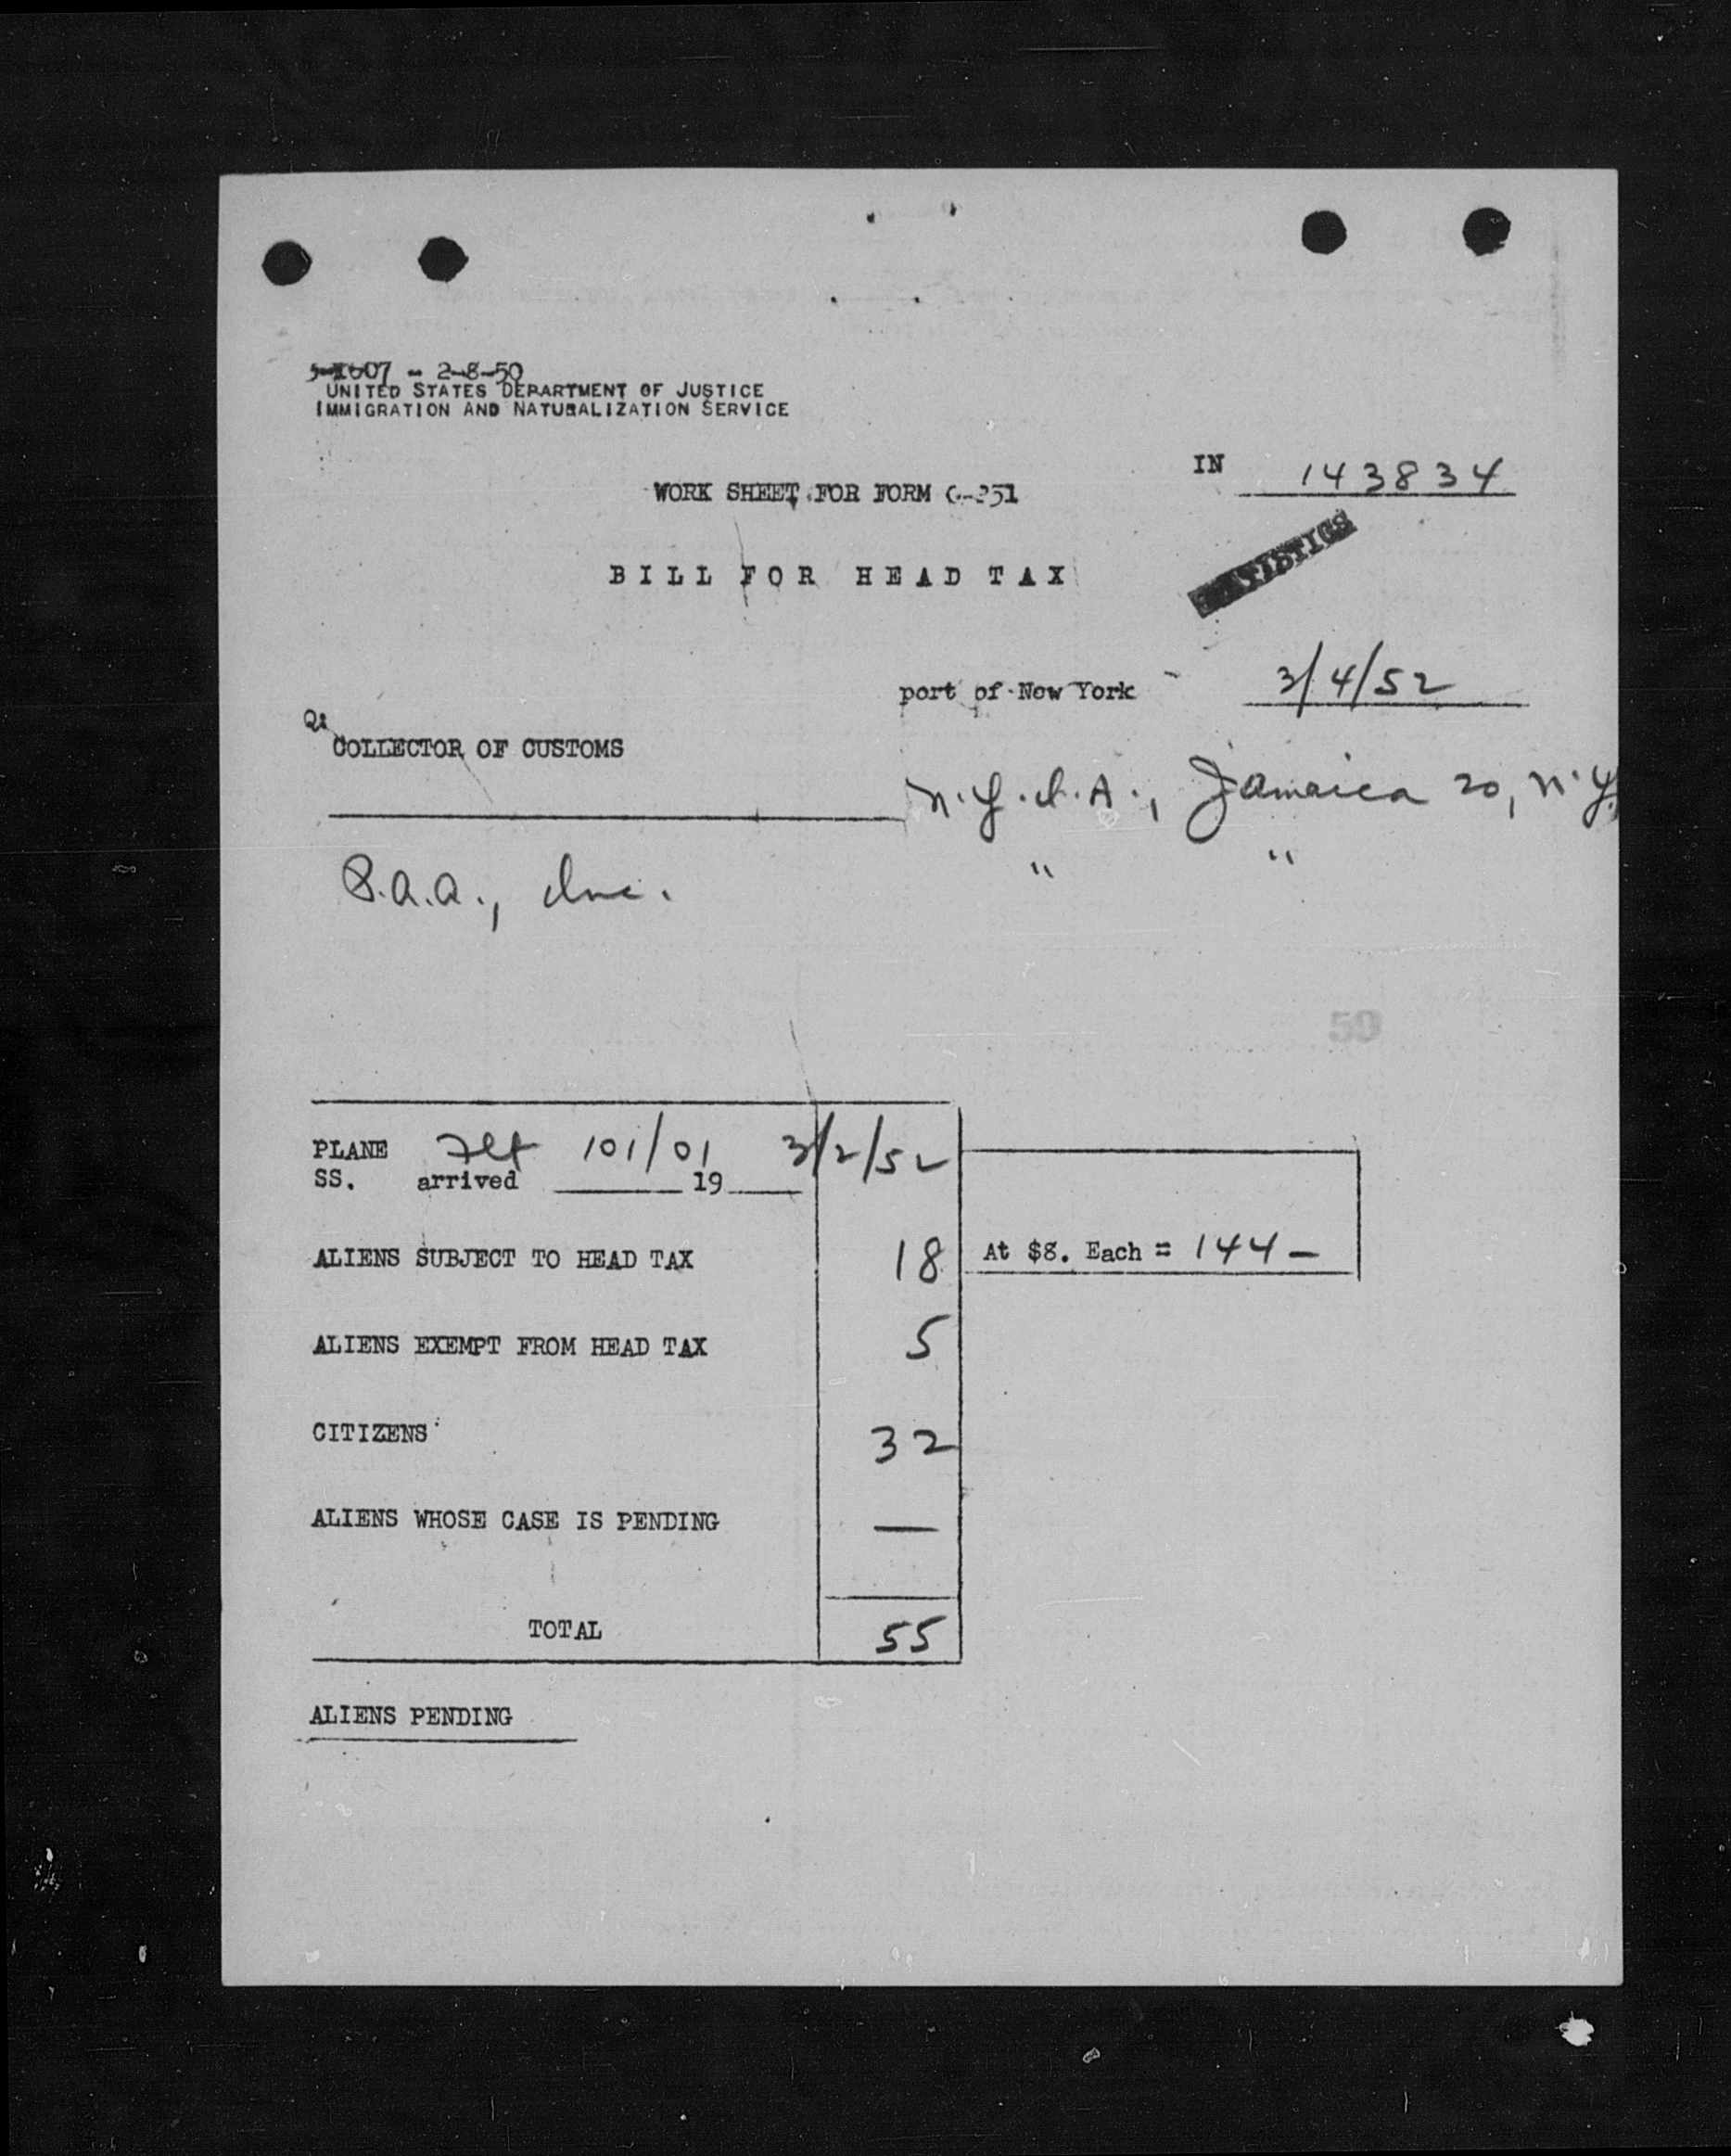 - 2-8-50
UNITED STATES DEPARTMENT OF JUSTICE
IMMIGRATION AND NATURALIZATION SERVICE
IN 143834
WORK SHEET FOR FORM G-251
BILL FOR HEAD TAX
port of New York 3/4/52
COLLECTOR OF CUSTOMS
N.Y.I.A., Jamaica 20, N.Y.
" "
P.A.A., Inc.
50
PLANE Flt 101/01 3/2/52
SS. arrived 19
ALIENS SUBJECT TO HEAD TAX 18 At $8. Each = 144 —
ALIENS EXEMPT FROM HEAD TAX 5
CITIZENS 32
ALIENS WHOSE CASE IS PENDING —
TOTAL 55
ALIENS PENDING